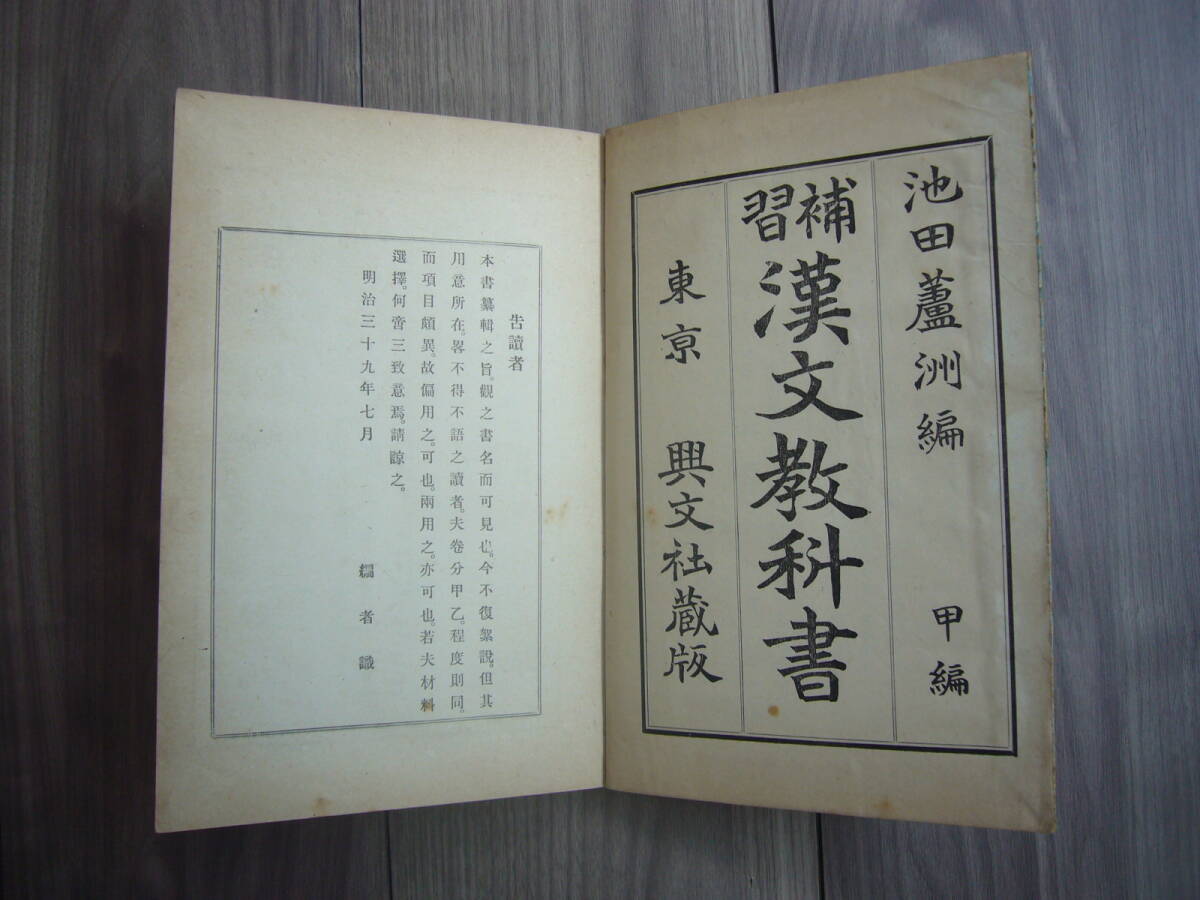 池田蘆洲編 甲編
補習漢文教科書
東京 興文社蔵版
告讀者
本書纂輯之旨。觀之書名而可見也。今不復絮說。但其
用意所在。畧不得不語之讀者。夫卷分甲乙。程度則同。
而項目頗異。故偏用之。可也。兩用之。亦可也。若夫材料
選擇。何啻三致意焉。請諒之。
明治三十九年七月
編者識